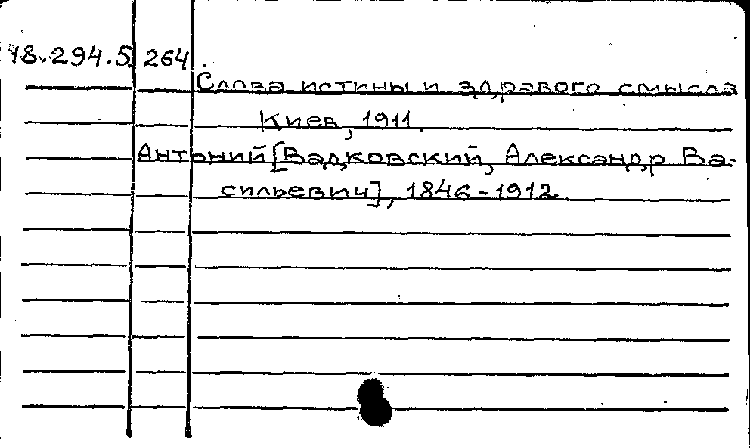 18.294.5 264
Слова истины и здравого смысла
Киев, 1911.
Антоний [Вадковский, Александр Ва-
сильевич], 1846-1912.